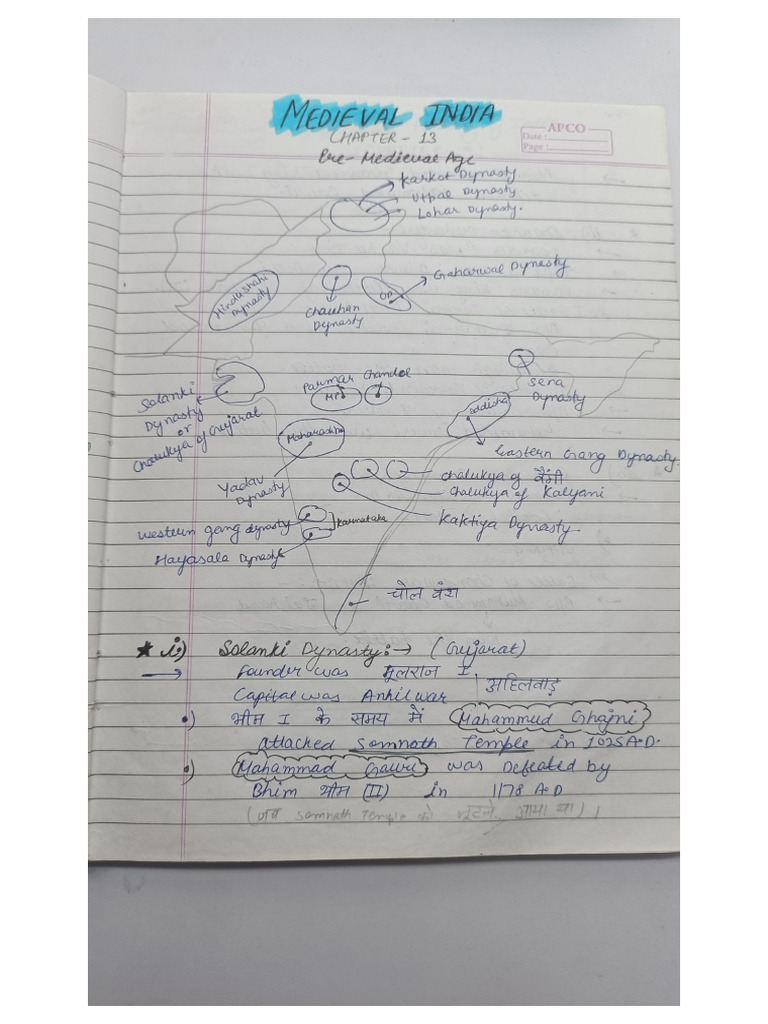 MEDIEVAL INDIA
CHAPTER - 13
Pre-Medieval Age
APCO
Date :
Page :
Karkot Dynasty
Utpal Dynasty
Lohar Dynasty.
Gaharwal Dynasty
Hindushahi Dynasty
UP
Chauhan Dynasty
Sena Dynasty
Solanki Dynasty or Chalukya of Gujarat
Parmar
Chandel
MP
Oddisha
Maharashtra
Eastern Gang Dynasty.
Yadav Dynasty
Chalukya of वेंगी
Chalukya of Kalyani
Kaktiya Dynasty
Western gang dynasty
Karnataka
Hayasala Dynasty
चोल वंश
* i.) Solanki Dynasty:→ (Gujarat)
→ Founder was मूलराज I
Capital was Anhilwar | अहिलवाड़
•) भीम I के समय में Mahammud Ghajni
attacked Somnath Temple in 1025 A.D.
•) Mahammad Gauri was defeated by
Bhim भीम (II) in 1178 A.D
(जब Somnath Temple को लूटने आया था) ।